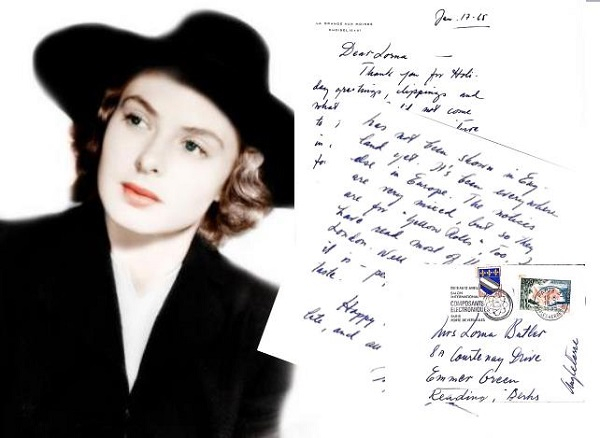 LA GRANGE AUX MOINES
Jan. 17-65
Dear Lorna —
Thank you for Holi-
day greetings, clippings and
what
I'd not come
to
has not been shown in Eng-
land yet. It's been everywhere
else in Europe. The notices
are very mixed, but so they
are for "Yellow Rolls" too.
have read most of
London. Well
it is - pe
taste.
Happy
late, and all
SALON
INTERNATIONAL
COMPOSANTS
ELECTRONIQUES
Mrs Lorna Butler
8A Courtenay Drive
Emmer Green
Reading, Berks
Angleterre